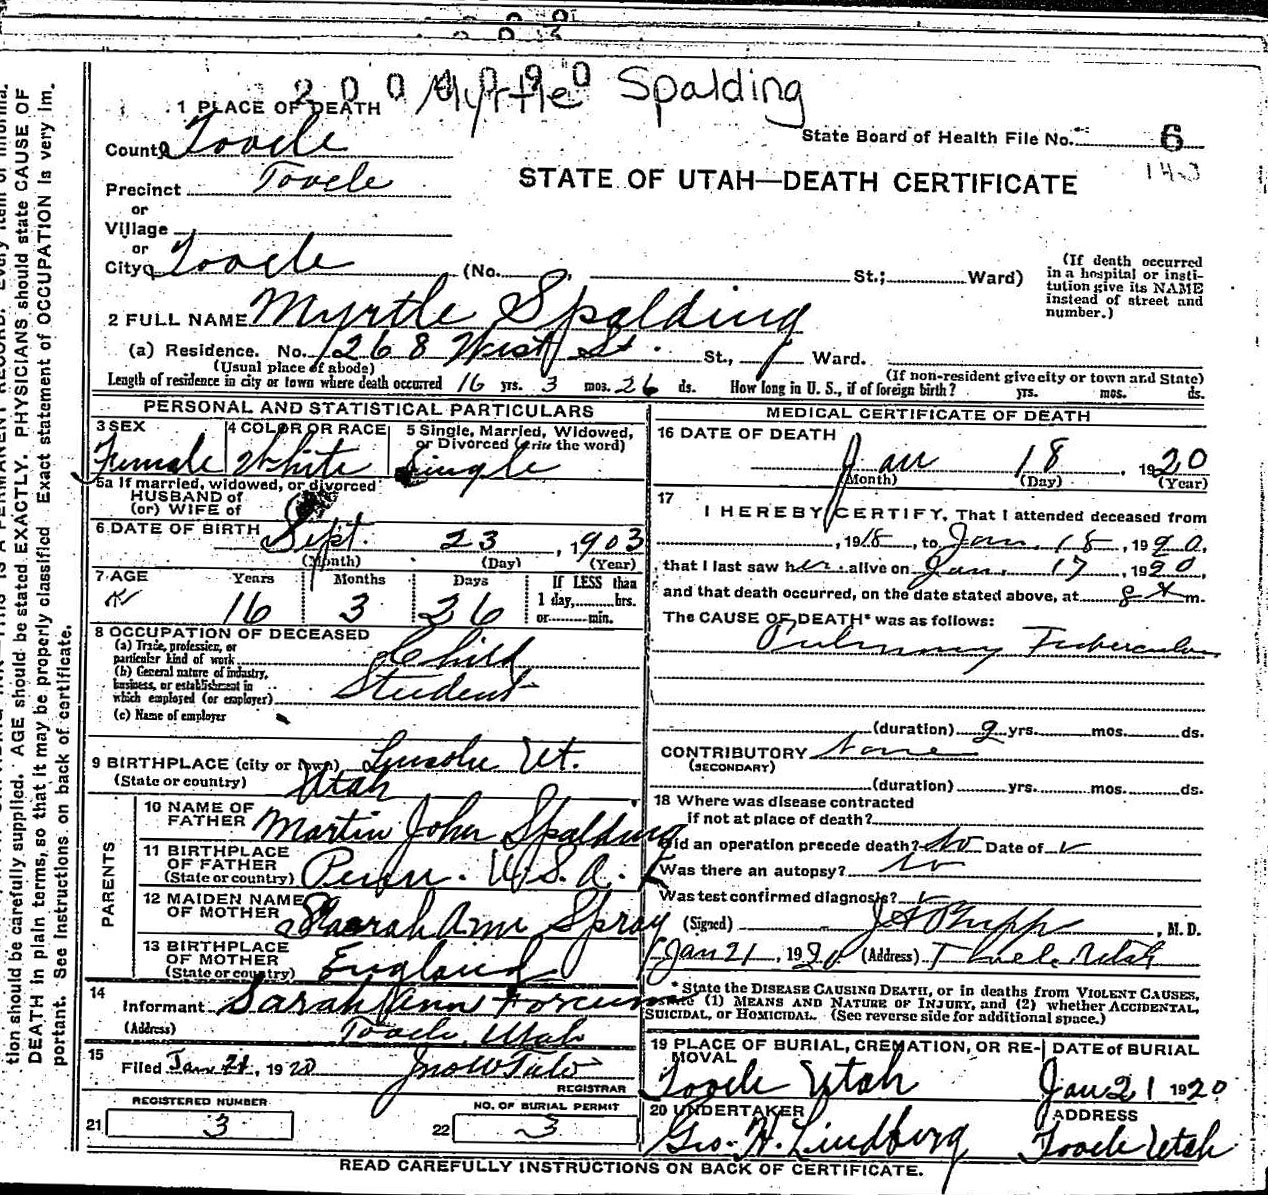 2 0 0 4 0 9 0
Myrtle Spalding
1 PLACE OF DEATH
State Board of Health File No. 6
County Tooele
Precinct Tooele
STATE OF UTAH—DEATH CERTIFICATE
or
Village
or
City Tooele (No. St.; Ward)
(If death occurred in a hospital or insti-
tution give its NAME
instead of street and
number.)
2 FULL NAME Myrtle Spalding
(a) Residence. No. 268 West St. St., Ward.
(Usual place of abode) (If non-resident give city or town and State)
Length of residence in city or town where death occurred 16 yrs. 3 mos. 26 ds. How long in U. S., if of foreign birth? yrs. mos. ds.
PERSONAL AND STATISTICAL PARTICULARS
3 SEX Female
4 COLOR OR RACE White
5 Single, Married, Widowed,
or Divorced (write the word)
Single
5a If married, widowed, or divorced
HUSBAND of
(or) WIFE of
6 DATE OF BIRTH Sept. 23, 1903
(Month) (Day) (Year)
7 AGE Years Months Days If LESS than
1 day, hrs.
or min.
16 3 26
8 OCCUPATION OF DECEASED
(a) Trade, profession, or
particular kind of work Child
(b) General nature of industry,
business, or establishment in
which employed (or employer) Student
(c) Name of employer
9 BIRTHPLACE (city or town) Lincoln Ut.
(State or country) Utah
PARENTS
10 NAME OF
FATHER Martin John Spalding
11 BIRTHPLACE
OF FATHER
(State or country) Penn. U.S.A.
12 MAIDEN NAME
OF MOTHER Sarah Ann Spray
13 BIRTHPLACE
OF MOTHER
(State or country) England
14
Informant Sarah Ann
(Address) Tooele, Utah
15
Filed Jan 21, 1920
REGISTRAR
REGISTERED NUMBER
21 3
NO. OF BURIAL PERMIT
22 3
MEDICAL CERTIFICATE OF DEATH
16 DATE OF DEATH
Jan 18, 1920
(Month) (Day) (Year)
17
I HEREBY CERTIFY, That I attended deceased from
, 1918, to Jan. 18, 1920,
that I last saw her alive on Jan. 17, 1920,
and that death occurred, on the date stated above, at 8 m.
The CAUSE OF DEATH* was as follows:
Pulmonary Tuberculosis
(duration) 2 yrs. mos. ds.
CONTRIBUTORY None
(SECONDARY)
(duration) yrs. mos. ds.
18 Where was disease contracted
if not at place of death?
Did an operation precede death? No Date of
Was there an autopsy? No
Was test confirmed diagnosis?
(Signed) , M. D.
Jan 21, 1920 (Address) Tooele Utah
*State the DISEASE CAUSING DEATH, or in deaths from VIOLENT CAUSES,
state (1) MEANS AND NATURE OF INJURY, and (2) whether ACCIDENTAL,
SUICIDAL, or HOMICIDAL. (See reverse side for additional space.)
19 PLACE OF BURIAL, CREMATION, OR RE-
MOVAL
Tooele Utah
DATE of BURIAL
Jan 21 1920
20 UNDERTAKER
Geo. H. Lindberg
ADDRESS
Tooele Utah
READ CAREFULLY INSTRUCTIONS ON BACK OF CERTIFICATE.
tion should be carefully supplied. AGE should be stated EXACTLY. PHYSICIANS should state CAUSE OF
DEATH in plain terms, so that it may be properly classified. Exact statement of OCCUPATION is very im-
portant. See Instructions on back of certificate.